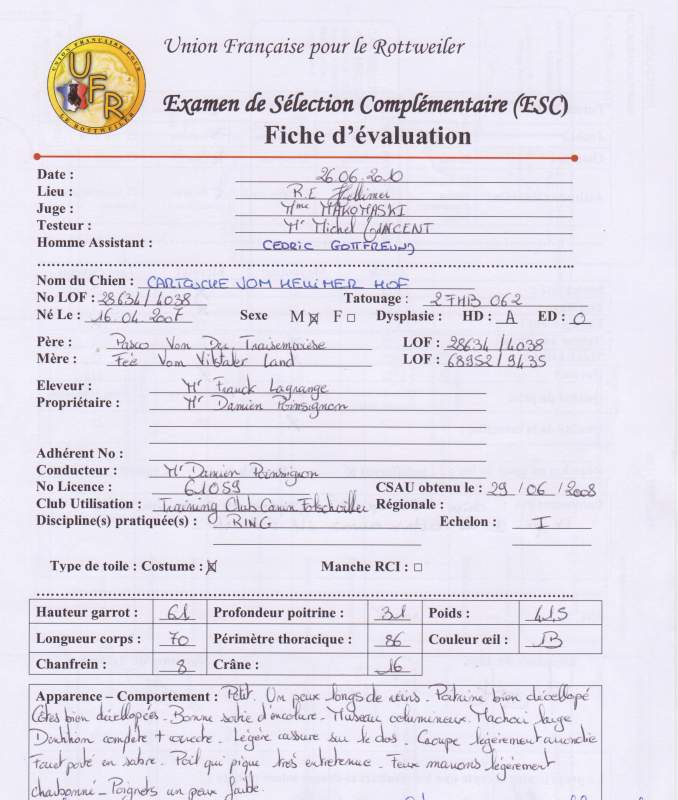 UNION FRANÇAISE POUR
UFR
LE ROTTWEILER
Union Française pour le Rottweiler
Examen de Sélection Complémentaire (ESC)
Fiche d'évaluation
Date : 26.06.2010
Lieu : R.E Hellimer
Juge : Mme MAKOMASKI
Testeur : Mr Michel
Homme Assistant : CEDRIC GOTTFREUND
Nom du Chien : CARTOUCHE VOM HELLIMER HOF
No LOF : 28634/4038 Tatouage : 2FHB 062
Né Le : 16.04.2007 Sexe M ☒ F □ Dysplasie : HD : A ED : O
Père : Pasco Von Der LOF : 28634/4038
Mère : Fée Vom Vilstaler Land LOF : 68952/9435
Eleveur : Mr Franck Lagrange
Propriétaire : Mr Damien Poinsignon
Adhérent No :
Conducteur : Mr Damien Poinsignon
No Licence : 61059 CSAU obtenu le : 29/06/2008
Club Utilisation : Training Club Canin Régionale :
Discipline(s) pratiquée(s) : RING Echelon : I
Type de toile : Costume : ☒ Manche RCI : □
Hauteur garrot : 61 Profondeur poitrine : 31 Poids : 41,5
Longueur corps : 70 Périmètre thoracique : 86 Couleur œil : 1B
Chanfrein : 8 Crâne : 16
Apparence – Comportement : Petit. Un peux longs de reins. Poitrine bien dévellopé
Côtes bien dévellopées. Bonne sortie d'encolure. Museau volumineux. Machoi large
Dentition complete + correcte. Légère cassure sur le dos. Croupe légèrement
Fouet porté en sabre. Poil qui pique très entretenue. Feux marrons légèrement
charbonné - Poignets un peux faible.